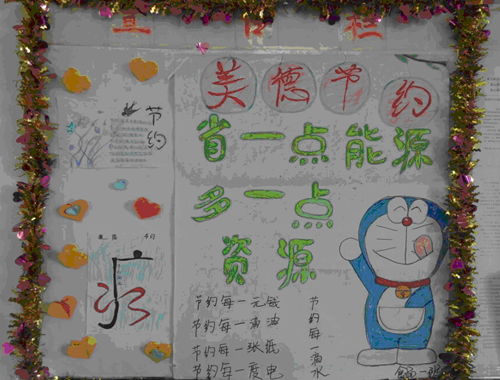 宣 栏
美德节约
节约
省一点能源
多一点
资源
节约每一元钱
节约每一滴油
节约每一张纸
节约每一度电
节约每一滴水